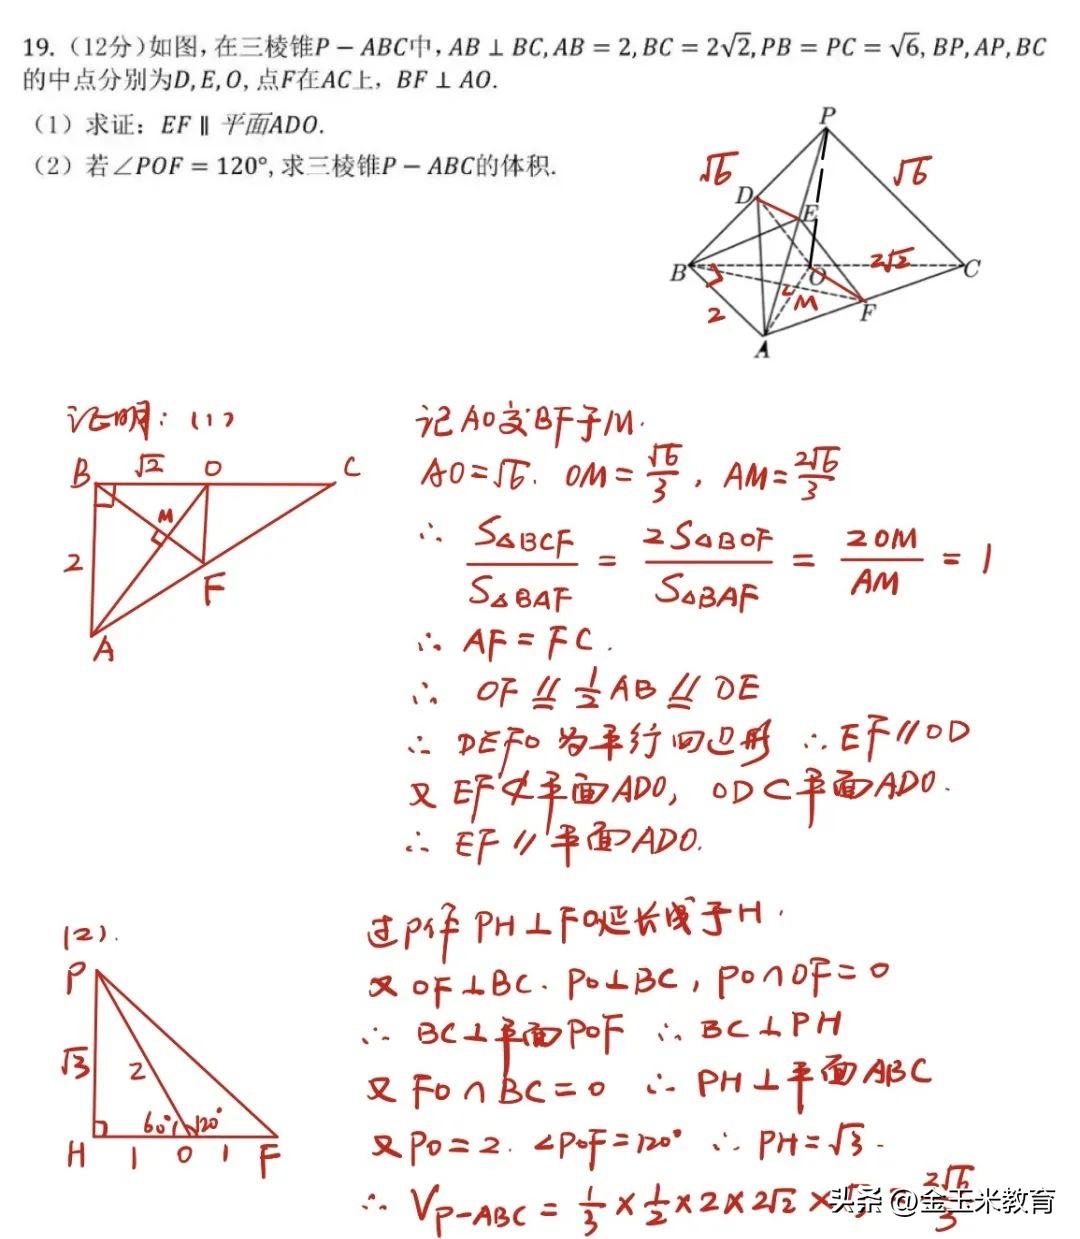 19.（12分）如图，在三棱锥P－ABC中，AB ⊥ BC, AB = 2, BC = 2√2, PB = PC = √6, BP, AP, BC
的中点分别为D, E, O, 点F在AC上，BF ⊥ AO.
（1）求证：EF ∥ 平面ADO.
（2）若∠POF = 120°, 求三棱锥P－ABC的体积.
P
√6
√6
D
E
B
O
2√2
C
2
M
F
A
证明：(1)
B √2 O C
M
2
F
A
记AO交BF于M.
AO=√6. OM=√6/3, AM=2√6/3
∴ S△BCF/S△BAF = 2S△BOF/S△BAF = 2OM/AM = 1
∴ AF = FC.
∴ OF ∥= 1/2 AB ∥= DE
∴ DEFO为平行四边形 ∴ EF∥OD
又 EF⊄平面ADO, OD⊂平面ADO.
∴ EF∥平面ADO.
(2).
P
√3 2
60° 120°
H 1 O 1 F
过P作 PH⊥FO延长线于H.
又 OF⊥BC. PO⊥BC, PO∩OF=O
∴ BC⊥平面POF ∴ BC⊥PH
又 FO∩BC=O ∴ PH⊥平面ABC
又 PO=2. ∠POF=120° ∴ PH=√3.
∴ V_P-ABC = 1/3×1/2×2×2√2×√3 = 2√6/3
头条 @金玉米教育